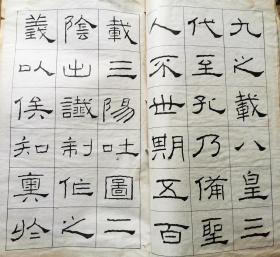 九之載八皇三
代至孔乃備聖
人不世期五百
載三陽吐圖二
陰出讖制作之
義以俟知奧於